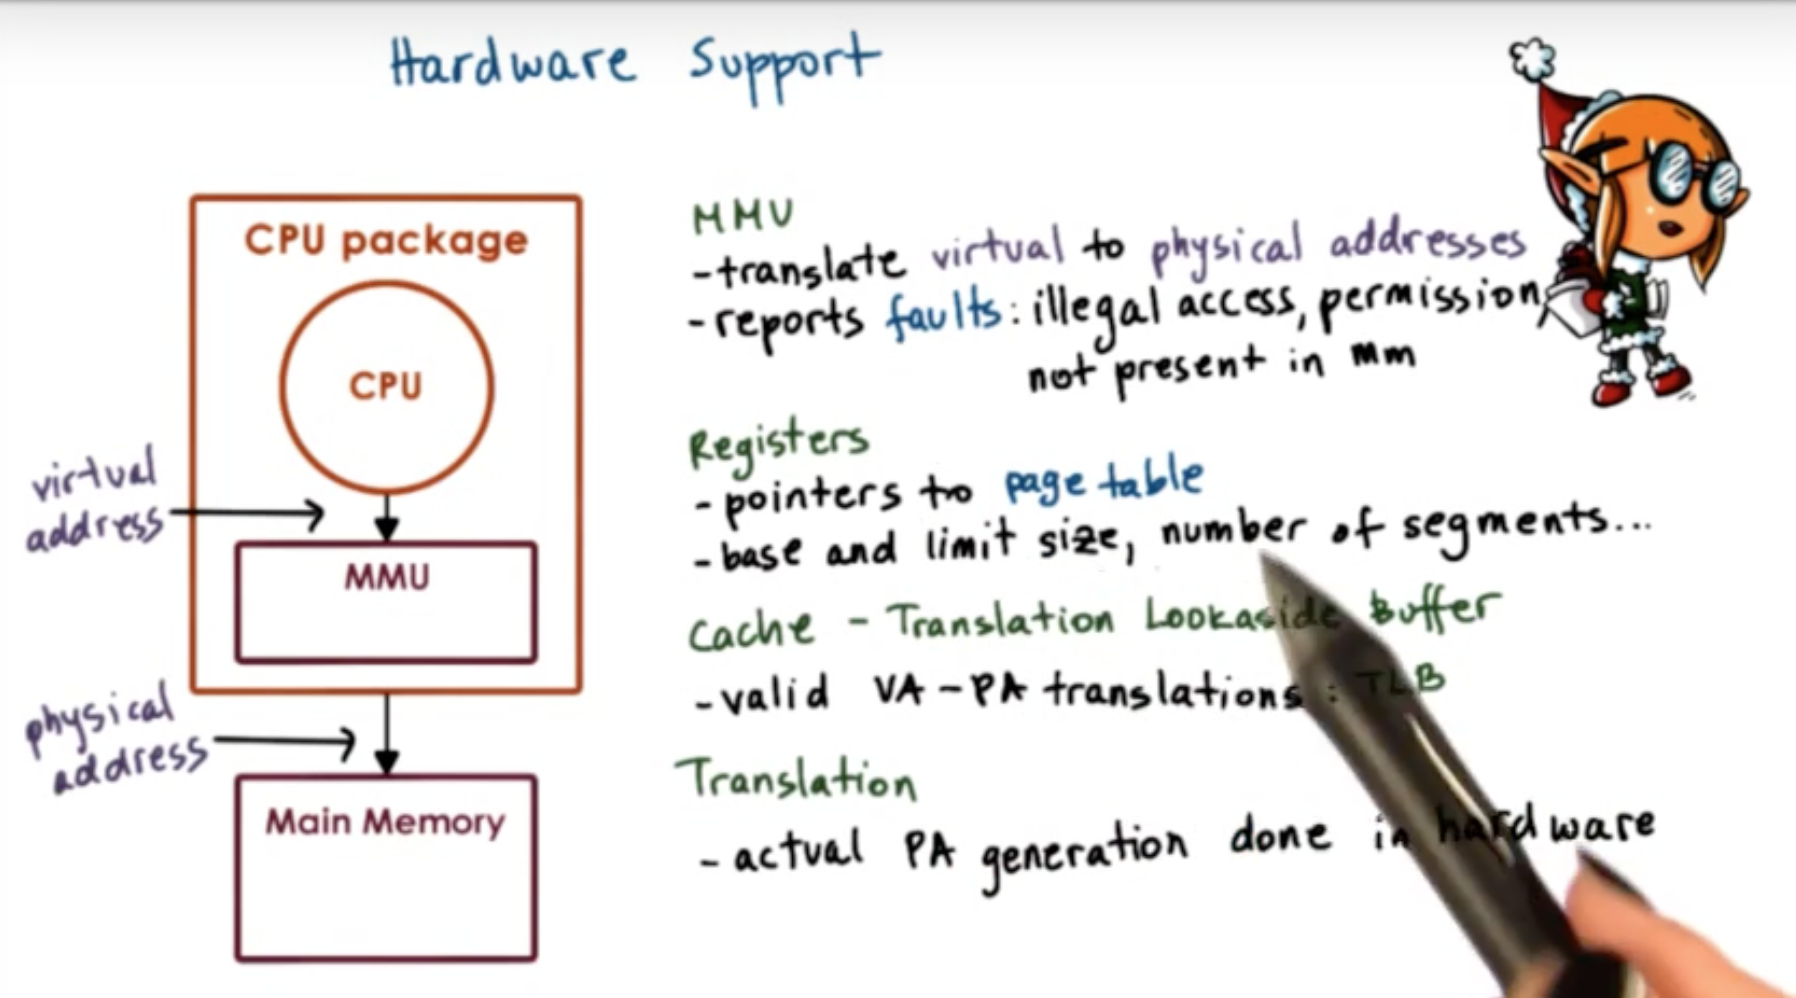 Hardware Support
CPU package
CPU
virtual
address
MMU
physical
address
Main Memory
MMU
-translate virtual to physical addresses
-reports faults: illegal access, permission,
not present in mm
Registers
- pointers to page table
- base and limit size, number of segments...
Cache - Translation Lookaside Buffer
- valid VA-PA translations: TLB
Translation
- actual PA generation done in hardware